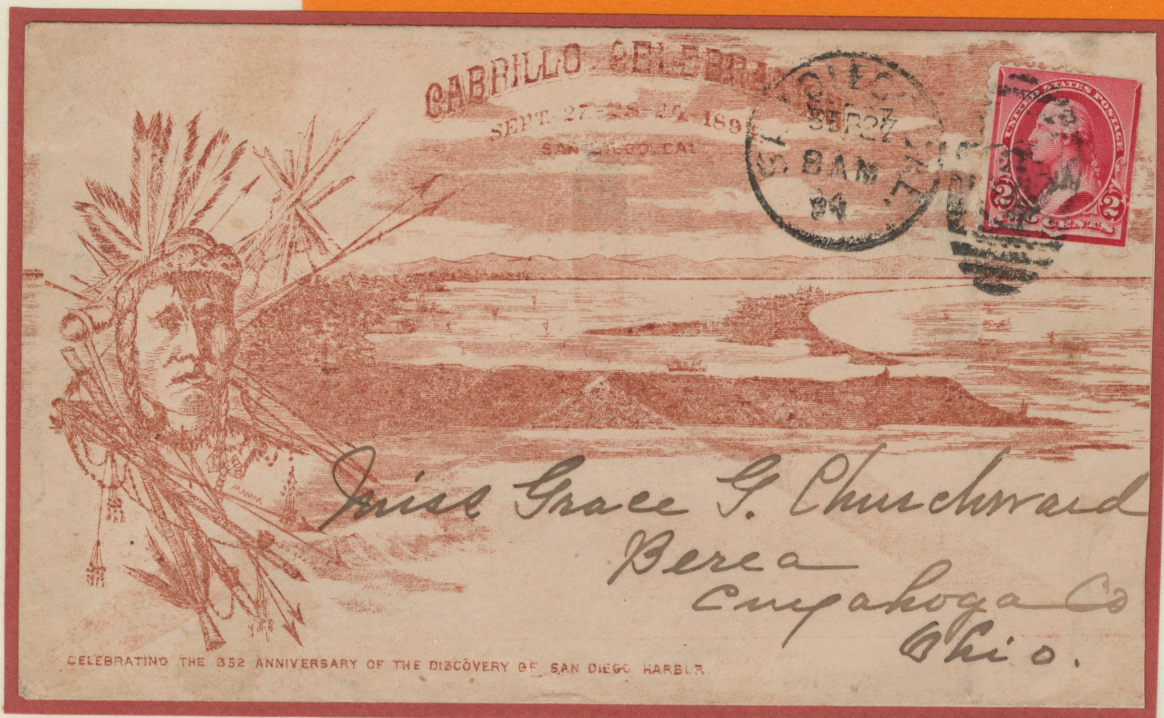 CABRILLO CELEBRA
SEPT. 27-28-29, 189
SAN DIEGO, CAL.
SAN DIEGO, CAL.
SEP 27
8 AM
94
UNITED STATES POSTAGE
2 CENTS 2
Miss Grace G. Churchward
Berea
Cuyahoga Co
Ohio.
CELEBRATING THE 352 ANNIVERSARY OF THE DISCOVERY OF SAN DIEGO HARBOR